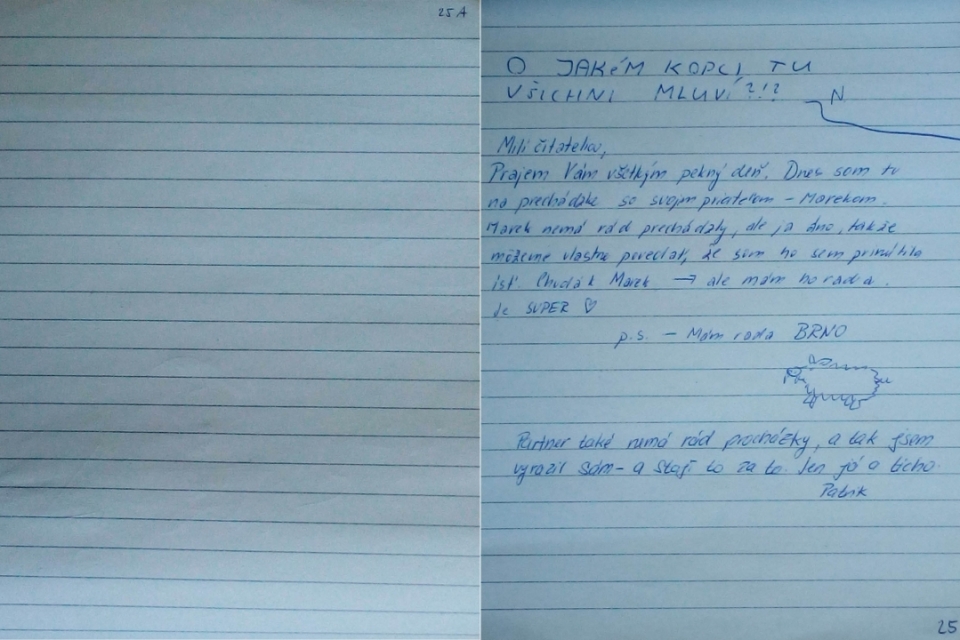 25 A
O JAKÉM KOPCI TU
VŠICHNI MLUVÍ?!?
N
Milí čitatelia,
Prajem Vám všetkým pekný deň. Dnes som tu
na prechádzke so svojim priateľom - Marekom.
Marek nemá rád prechádzky, ale ja áno, takže
môžeme vlastne povedať, že som ho sem prinútila
ísť. Chudák Marek → ale mám ho rada.
Je SUPER ♡
p.s. - Mám rada BRNO
Partner také nemá rád procházky, a tak jsem
vyrazil sám - a stojí to za to. Jen já a ticho.
Patrik
25